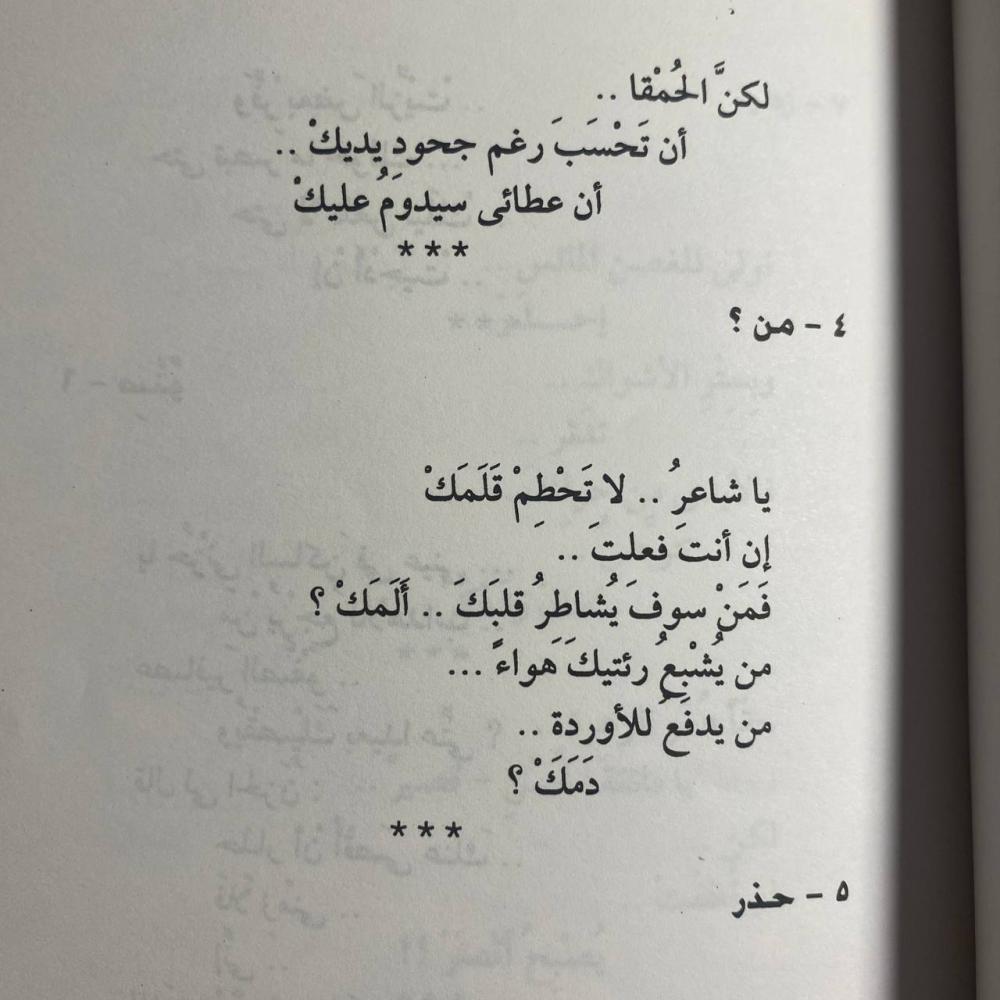 لكنَّ الحُمْقا ..
أن تَحْسَبَ رغم جحودِ يديكْ ..
أن عطائى سيدومُ عليكْ
***
٤ - من ؟
يا شاعرُ .. لا تَحْطِمْ قَلَمَكْ
إن أنتَ فعلتَ ..
فَمَنْ سوفَ يُشاطِرُ قلبَكَ .. أَلَمَكْ ؟
من يُشْبِعُ رئتيكَ هَواءً ...
من يدفَعُ للأوردة ..
دَمَكَْ ؟
***
٥ - حذر